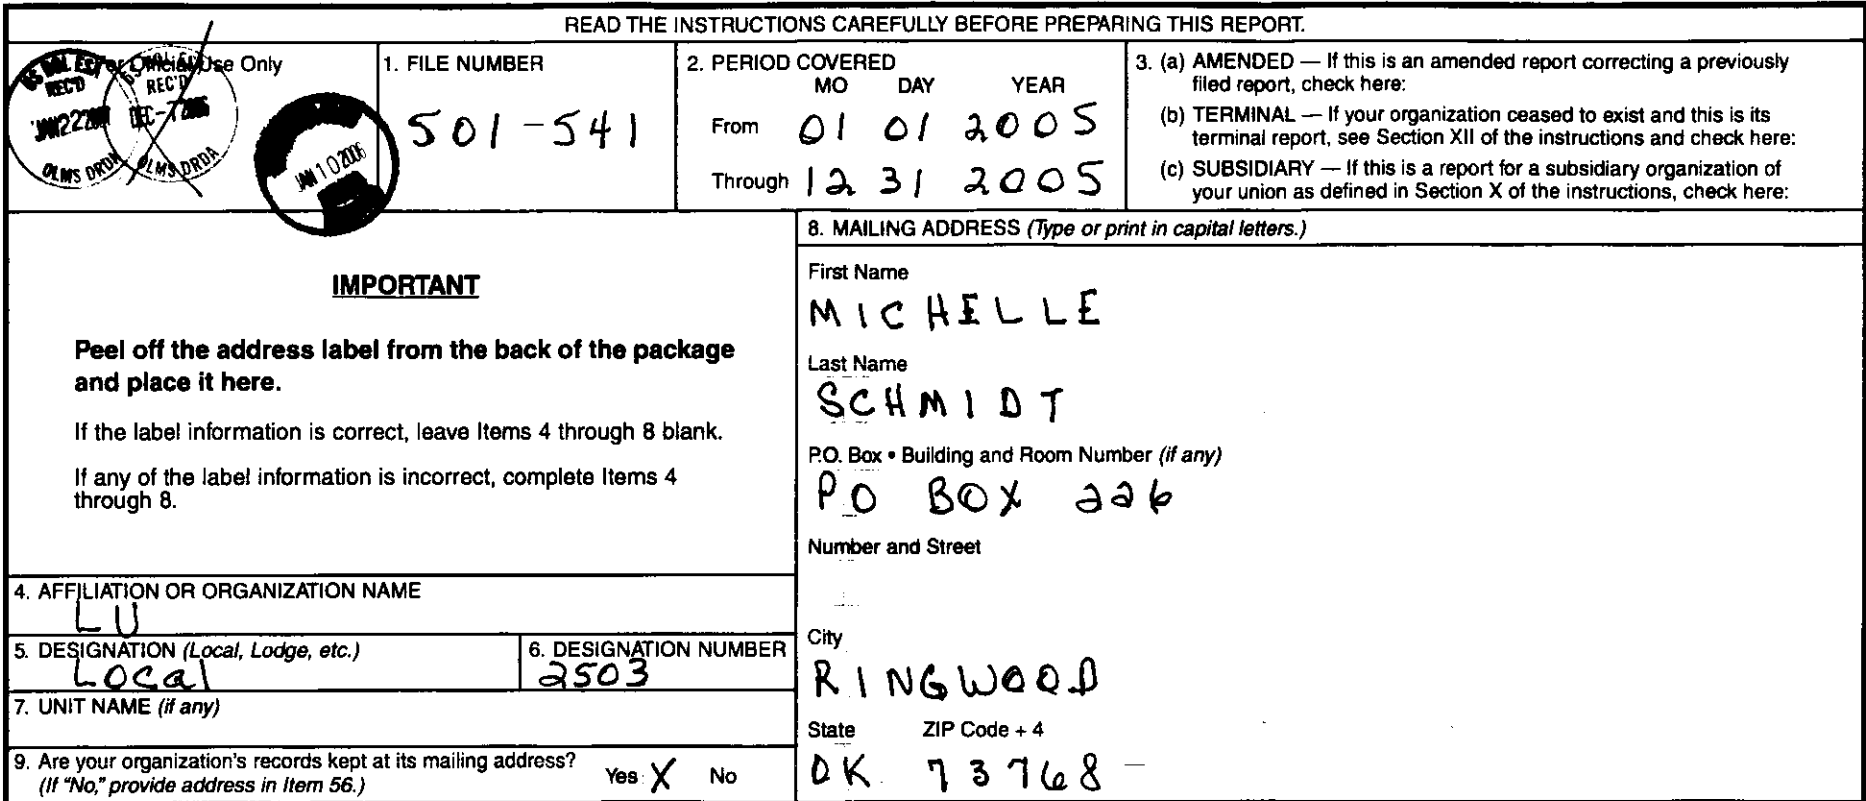 READ THE INSTRUCTIONS CAREFULLY BEFORE PREPARING THIS REPORT.
For Official Use Only
REC'D
REC'D
DEC-7 2006
OLMS DRDA
OLMS DRDA
JAN 10 2006
1. FILE NUMBER
501-541
2. PERIOD COVERED
MO DAY YEAR
From 01 01 2005
Through 12 31 2005
3. (a) AMENDED — If this is an amended report correcting a previously
filed report, check here:
(b) TERMINAL — If your organization ceased to exist and this is its
terminal report, see Section XII of the instructions and check here:
(c) SUBSIDIARY — If this is a report for a subsidiary organization of
your union as defined in Section X of the instructions, check here:
IMPORTANT
Peel off the address label from the back of the package
and place it here.
If the label information is correct, leave Items 4 through 8 blank.
If any of the label information is incorrect, complete Items 4
through 8.
4. AFFILIATION OR ORGANIZATION NAME
LU
5. DESIGNATION (Local, Lodge, etc.)
Local
6. DESIGNATION NUMBER
2503
7. UNIT NAME (if any)
9. Are your organization's records kept at its mailing address?
(If "No," provide address in Item 56.)
Yes X No
8. MAILING ADDRESS (Type or print in capital letters.)
First Name
MICHELLE
Last Name
SCHMIDT
P.O. Box • Building and Room Number (if any)
PO BOX 226
Number and Street
City
RINGWOOD
State ZIP Code + 4
OK 73768 –